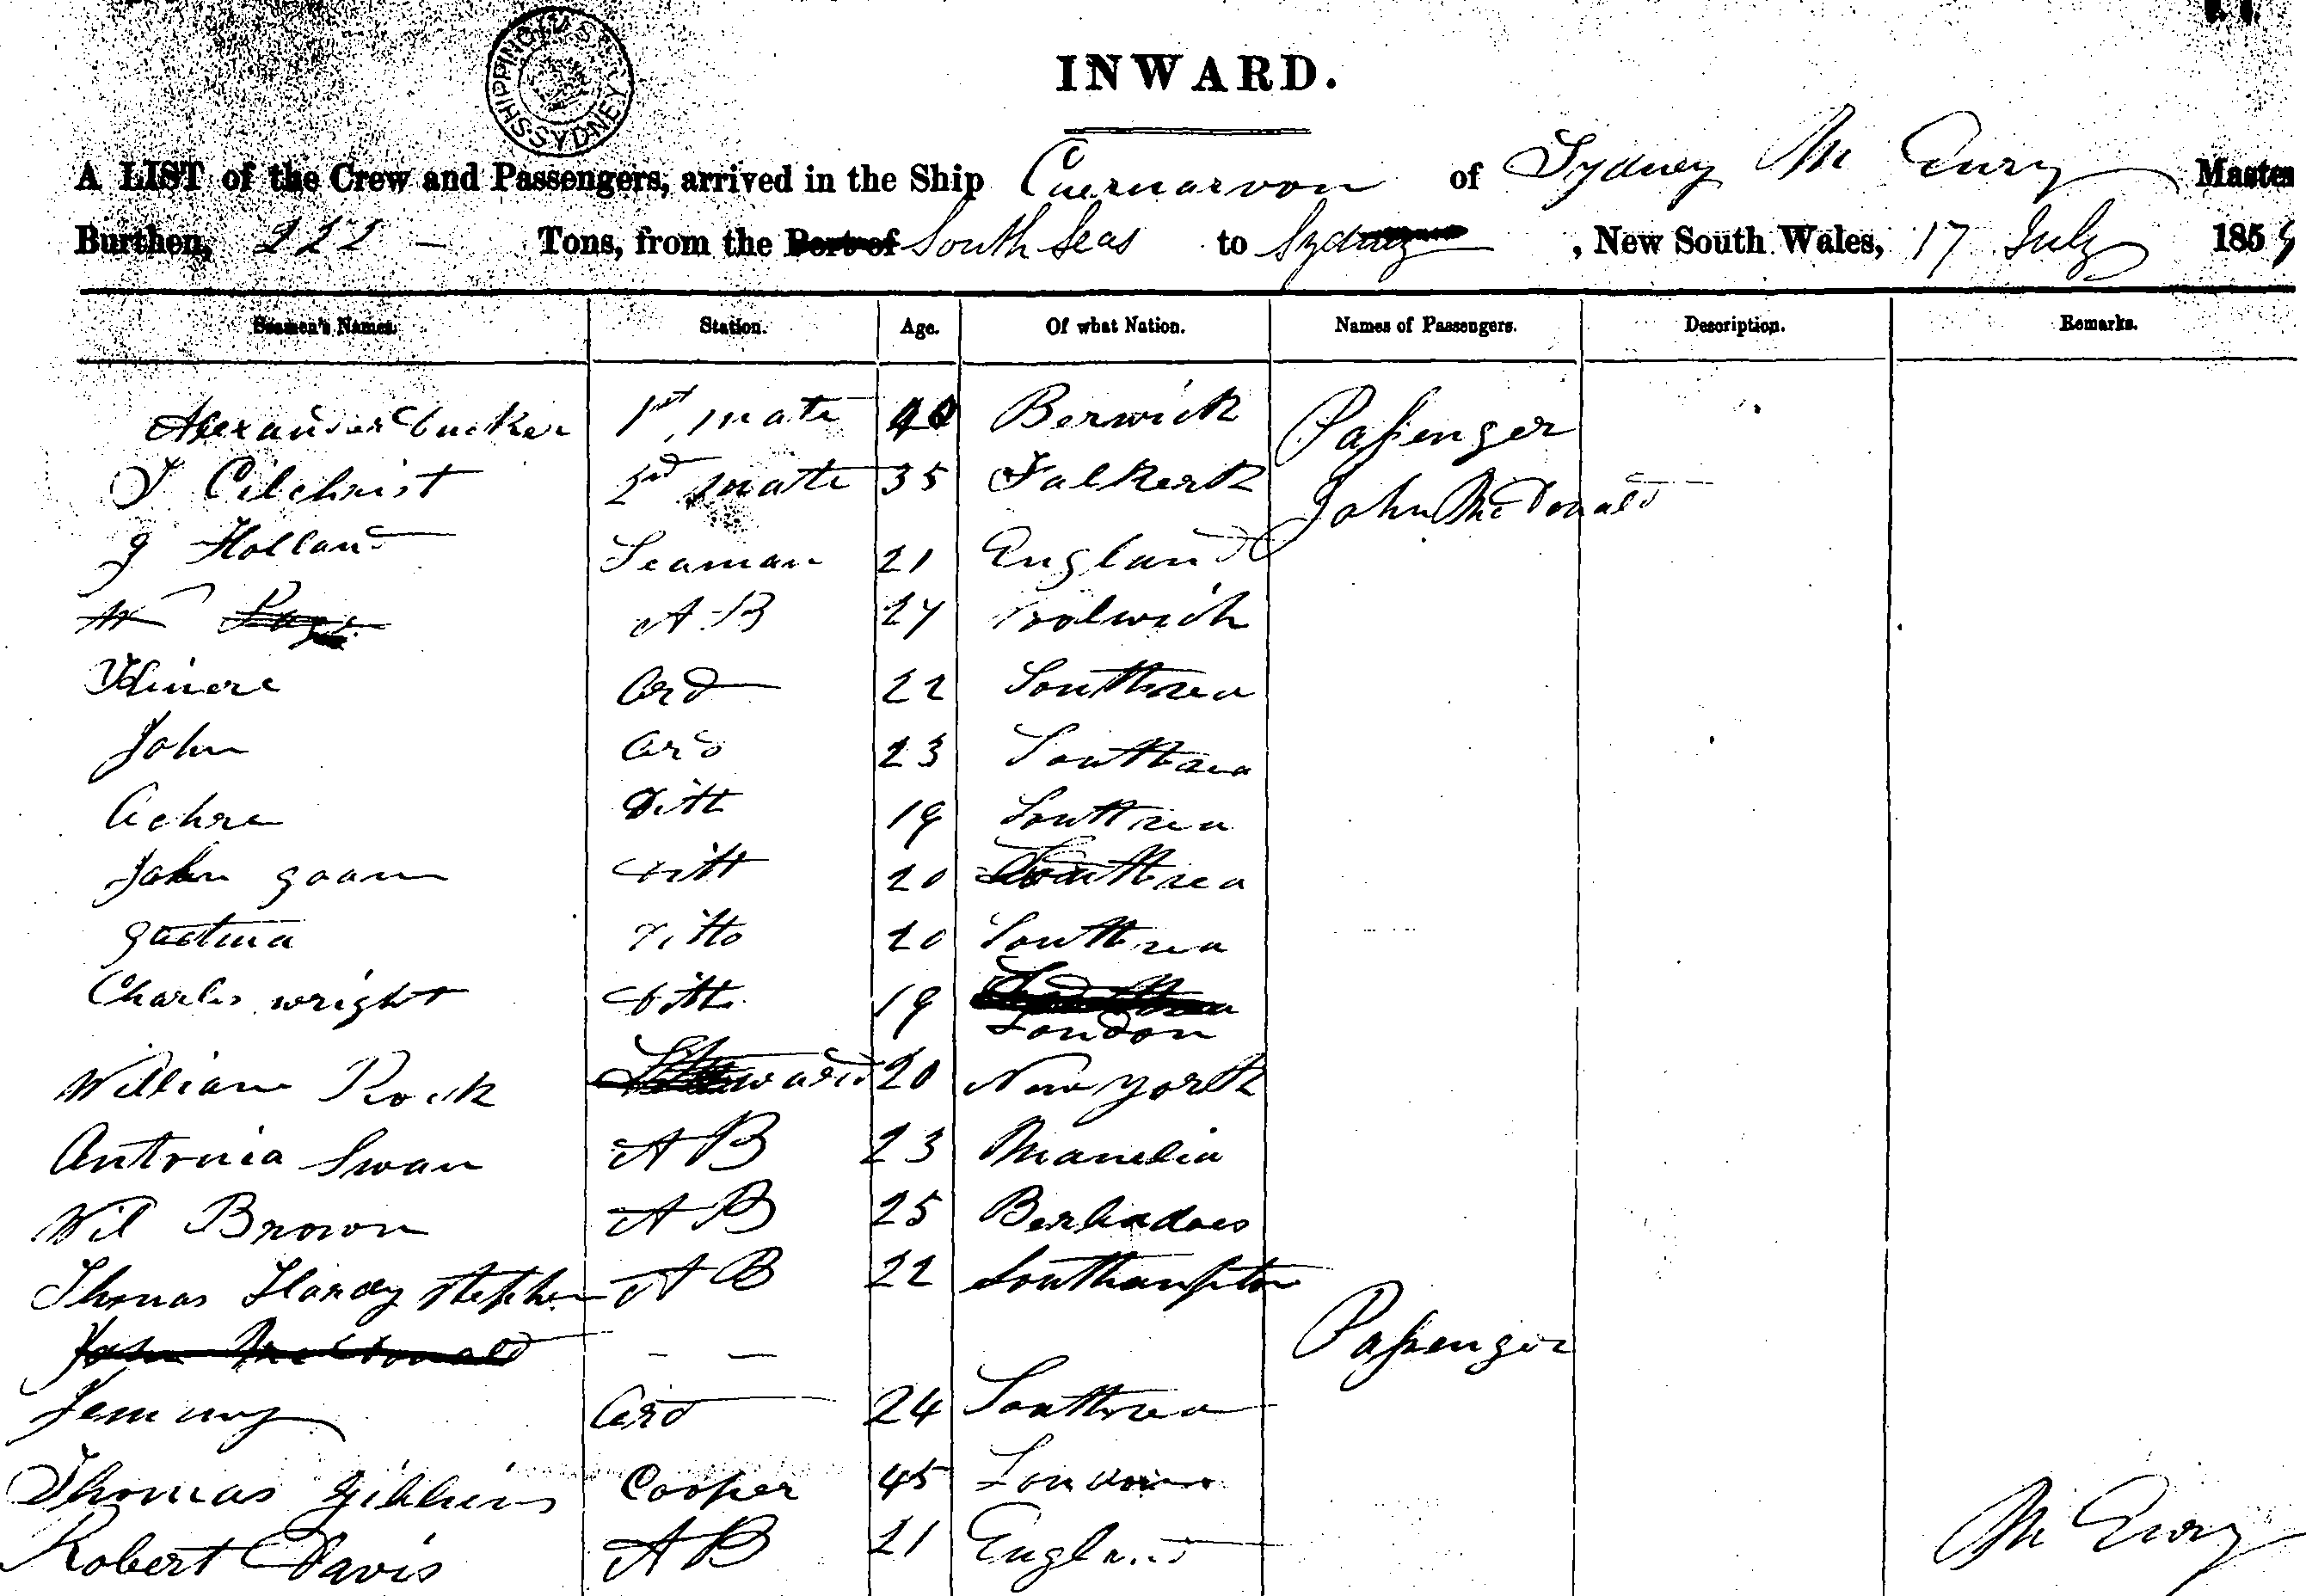 SHIPPING SYDNEY
INWARD.
A LIST of the Crew and Passengers, arrived in the Ship Caernarvon of Sydney M Ewry Master
Burthen, 222 - Tons, from the Port of South Seas to Sydney, New South Wales, 17 July 1859
Seamen's Names. Station. Age. Of what Nation. Names of Passengers. Description. Remarks.
Alexander Tucker 1st mate 40 Berwick Passenger
J Gilchrist 2nd mate 35 Falkerk John McDonald
J Holland Seaman 21 England
W Page A B 27 Woolwich
Ord 22 Southsea
John Ord 23 Southsea
Ditt 19 Southsea
John goam ditt 20 Southsea
Ditto 20 Southsea
Charles wright ditto 19 London
William Rock Steward 20 New york
Antonia Swan A B 23 Manelia
Wil Brown A B 25 Berbadoes
Thomas Hardy Stephen A B 22 Southampton
John McDonald - - Passenger
Jemmy Ord 24 Southsea
Thomas Gibbins Cooper 45 London
Robert Davis A B 21 England
M Ewry